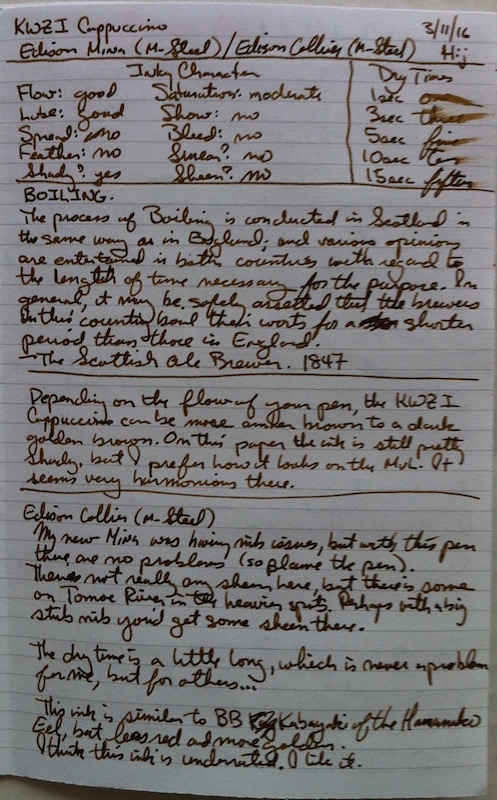 KWZI Cappuccino 3/11/16
Edison Mina (M-Steel)/Edison Collier (M-Steel)
Inky Character Dry Times
Flow: good Saturation: moderate 1sec
Lube: good Show: no 3sec three
Spread: no Bleed: no 5sec five
Feather: no Smear? no 10sec ten
Shady? yes Sheen? no 15sec fifteen
BOILING.
The process of Boiling is conducted in Scotland in
the same way as in England; and various opinions
are entertained in both countries with regard to
the length of time necessary for the purpose. In
general, it may be safely asserted that the brewers
in this country boil their worts for a shorter
period than those in England.
—The Scottish Ale Brewer. 1847
Depending on the flow of your pen, the KWZI
Cappuccino can be more amber brown to a dark
golden brown. On this paper the ink is still pretty
shady, but I prefer how it looks on the MvL. It
seems very harmonious there.
Edison Collier (M-Steel)
My new Mina was having nib issues, but with this pen
there are no problems (so blame the pen).
There's not really any sheen here, but there is some
on Tomoe River in heavier spots. Perhaps with a big
stub nib you'd get some sheen there.
The dry time is a little long, which is never a problem
for me, but for others...
This ink is similar to BB Kabayaki of the Hamanako
Eel, but less red and more golden.
I think this ink is underrated. I like it.